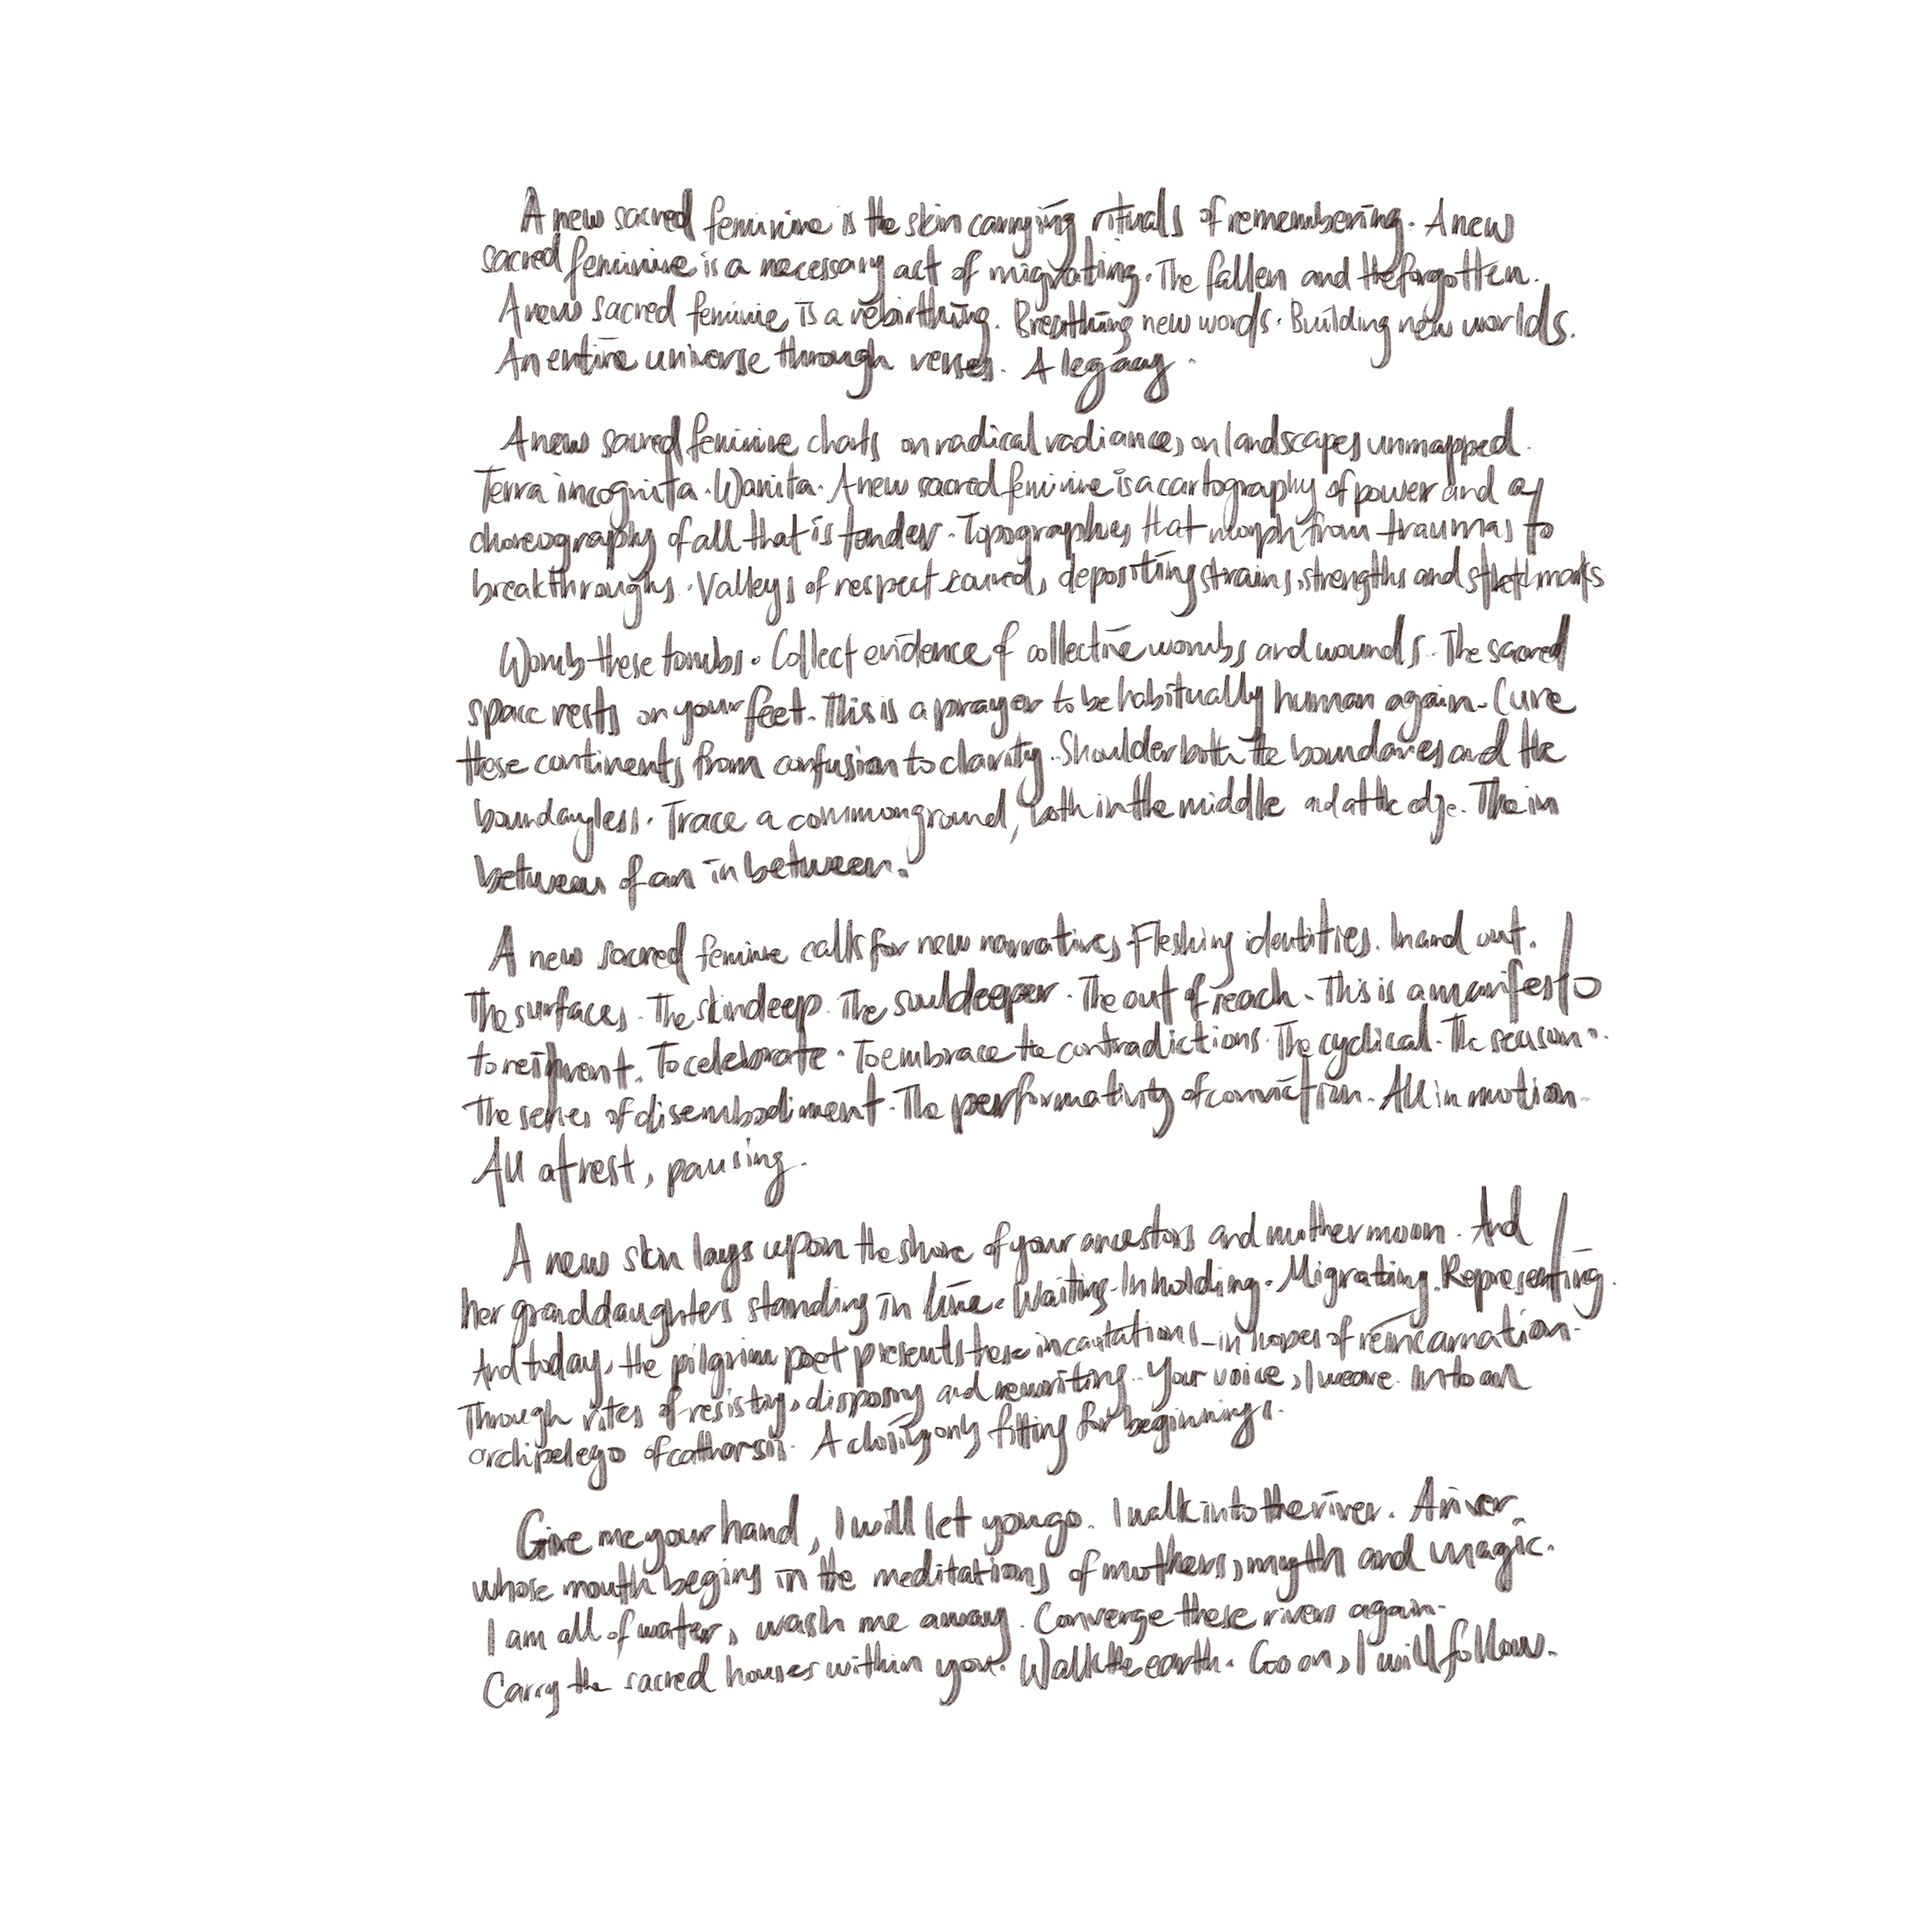 A new sacred feminine is the skin carrying rituals of remembering. A new
sacred feminine is a necessary act of migrating. The fallen and the forgotten.
A new sacred feminine is a rebirthing. Breathing new words. Building new worlds.
An entire universe through verses. A legacy.
A new sacred feminine charts on radical radiance, on landscapes unmapped.
Terra incognita. Wanita. A new sacred feminine is a cartography of power and a
choreography of all that is tender. Topographies that morph from traumas to
breakthroughs. Valleys of respect earned, depositing strains, strengths and stretchmarks
Womb these tombs. Collect evidence of collective wombs and wounds. The sacred
space rests on your feet. This is a prayer to be habitually human again. Cure
these continents from confusion to clarity. Shoulder both the boundaries and the
boundaryless. Trace a common ground, both in the middle and at the edge. The in
between of an in between.
A new sacred feminine calls for new narratives. Fleshing identities. In and out.
The surfaces. The skin deep. The soul deeper. The out of reach. This is a manifesto
to reinvent. To celebrate. To embrace the contradictions. The cyclical. The season.
The series of disembodiment. The performativity of conviction. All in motion.
All at rest, pausing.
A new skin lays upon the shore of your ancestors and mother moon. And
her granddaughters standing in line. Waiting. In holding. Migrating. Representing.
And today, the pilgrim poet presents these incantations in hopes of reincarnation.
Through rites of resisting, disposing and rewriting. Your voice, I weave. Into an
archipelego of catharsis. A closing only fitting for beginnings.
Give me your hand, I will let you go. I walk into the river. A river
whose mouth begins in the meditations of mothers, myth and magic.
I am all of water, wash me away. Converge these rivers again.
Carry the sacred houses within you. Walk the earth. Go on, I will follow.